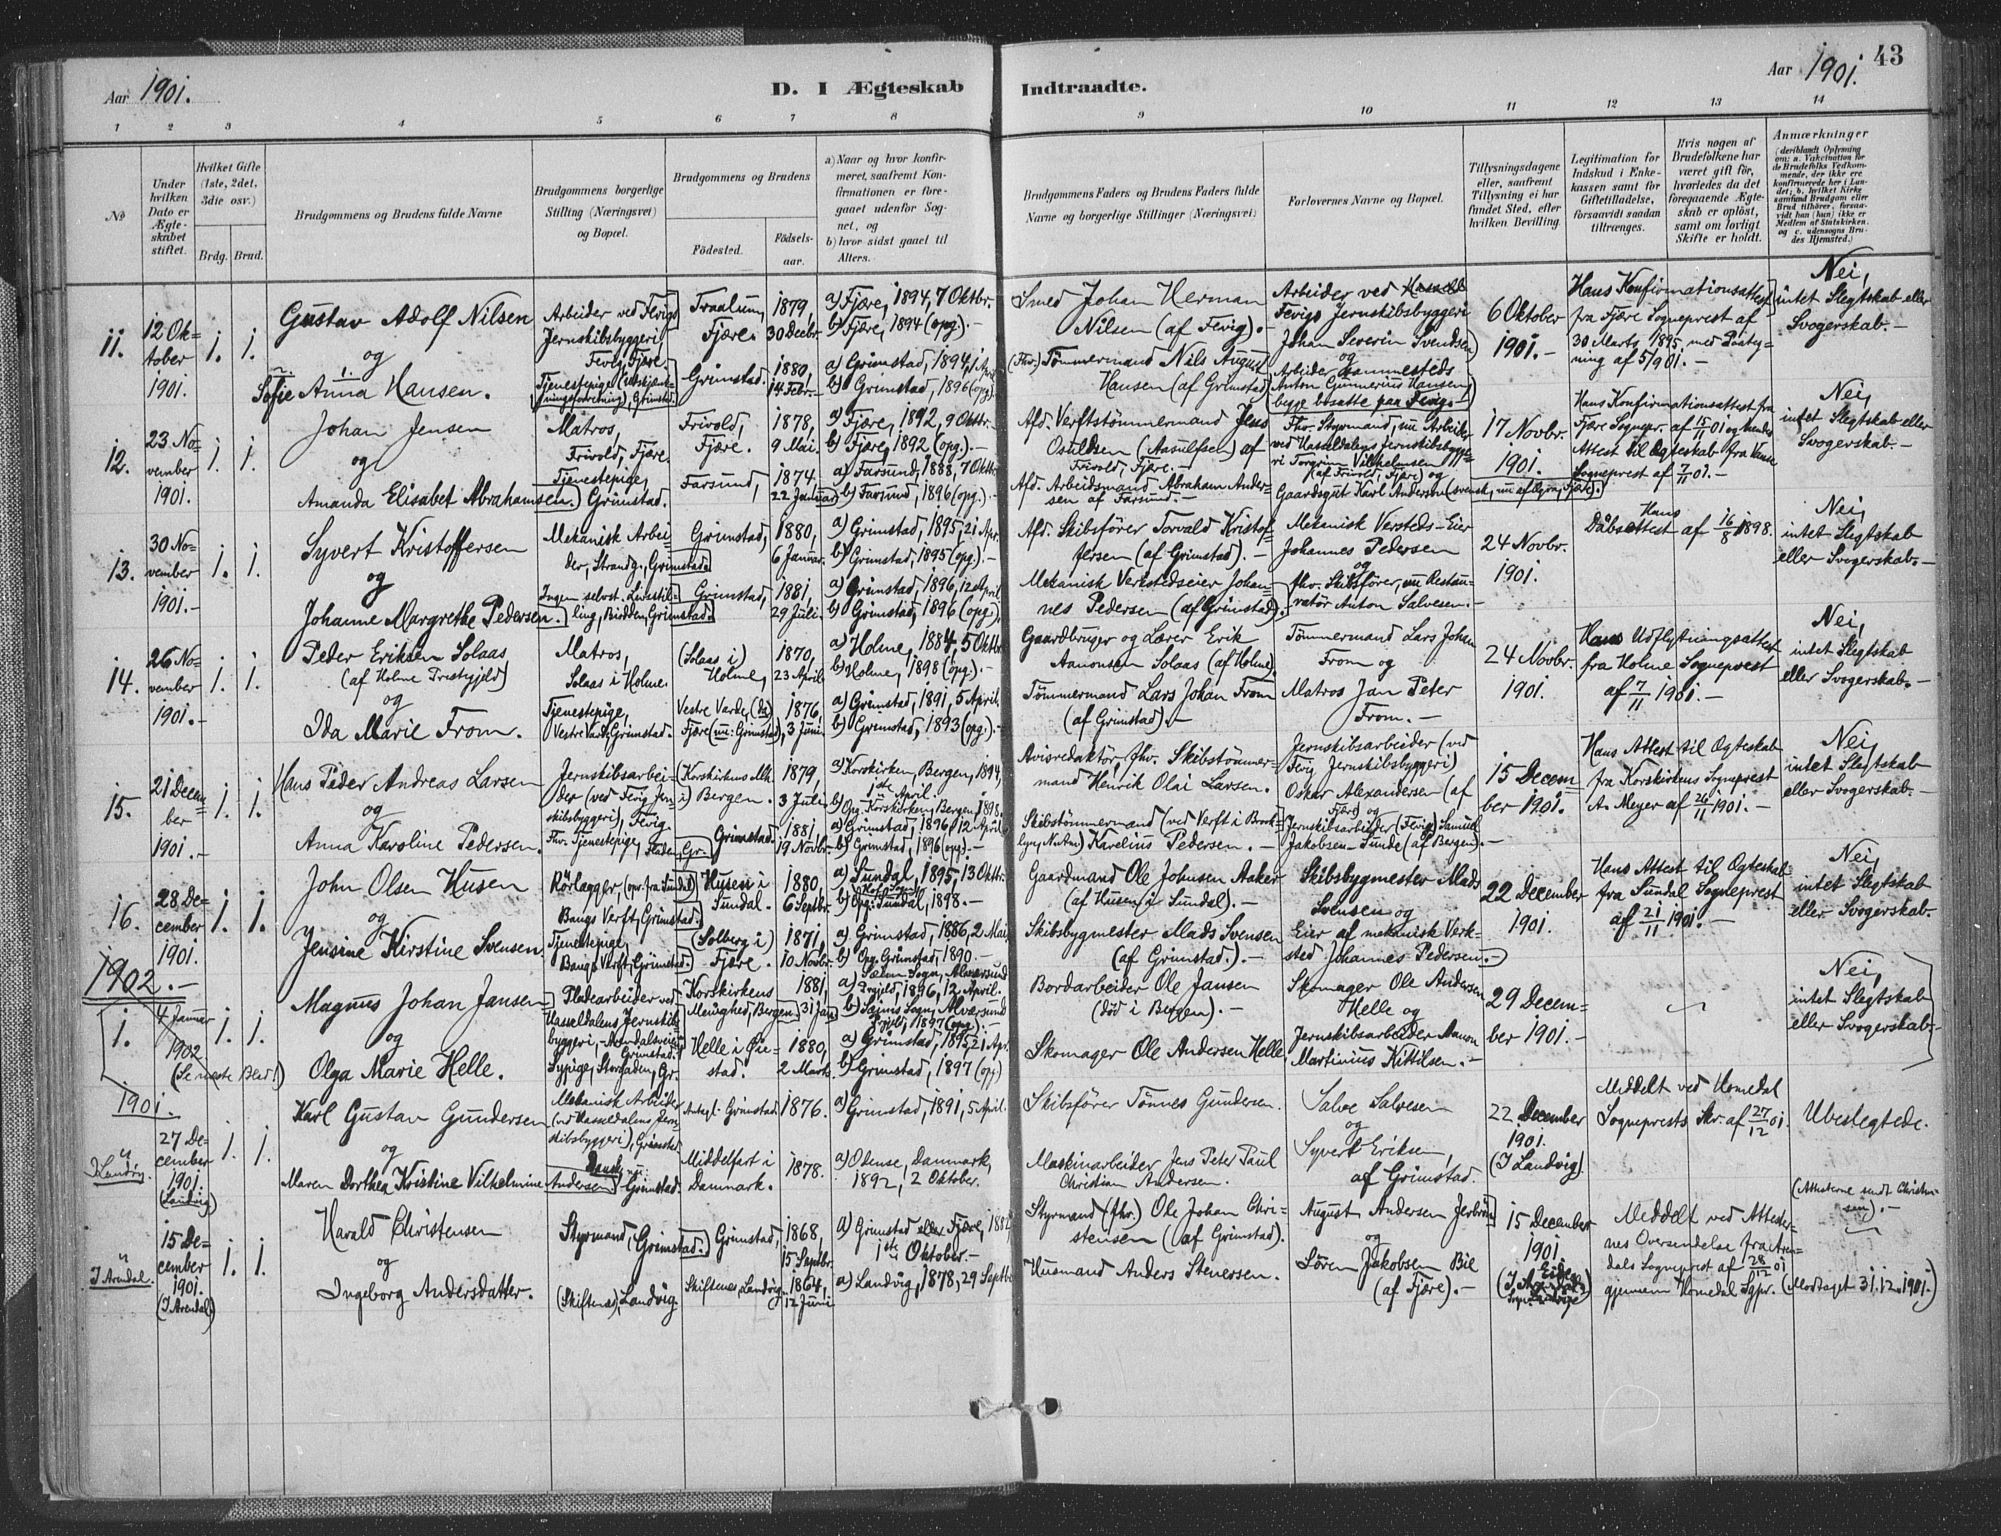 Aar 1901.
D. I Ægteskab Indtraadte.
Aar 1901.
43
1 2 3 4 5 6 7 8 9 10 11 12 13 14
No
Under hvilken Dato er Ægteskabet stiftet.
Hvilket Gifte (1ste, 2det, 3die osv.)
Brdg. Brud.
Brudgommens og Brudens fulde Navne
Brudgommens borgerlige Stilling (Næringsvei) og Bopæl.
Brudgommens og Brudens
Fødested.
Fødsels-aar.
a) Naar og hvor konfirmeret, saafremt Konfirmationen er foregaaet udenfor Sognet, og
b) hvor sidst gaaet til Alters.
Brudgommens Faders og Brudens Faders fulde Navne og borgerlige Stillinger (Næringsvei)
Forlovernes Navne og Bopæl.
Tillysningsdagene eller, saafremt Tillysning ei har fundet Sted, efter hvilken Bevilling.
Legitimation for Indskud i Enkekassen samt for Giftetilladelse, forsaavidt saadan tiltrænges.
Hvis nogen af Brudefolkene har været gift før, hvorledes da det foregaaende Ægteskab er opløst, samt om lovligt Skifte er holdt.
Anmærkninger (deriblandt Oplysning om: a. Vakcination for de Brudefolks Vedkommende, der ikke ere konfirmerede her i Landet; b. hvilket Kirkesamfund Brudgom eller Brud tilhører, forsaavidt han (hun) ikke er Medlem af Statskirken, og c. udensogns Brudes Hjemsted.)
11. 12 Oktober 1901. 1. 1.
Gustav Adolf Nilsen
og
Sofie Anna Hansen.
Arbeider ved Fevigs Jernskibsbyggeri, Fevig, Fjære.
Tjenestepige, Grimstad.
Traalum, Fjære.
Grimstad.
1879, 30 Decbr.
1880, 14 Febr.
a) Fjære, 1894, 7 Oktbr.
b) Fjære, 1894 (opg.).
a) Grimstad, 1894, 1 April
b) Grimstad, 1896 (opg.)
Smed Johan Herman Nilsen (af Fevig).
(Fhv.) Tømmermand Nils August Hansen (af Grimstad)
Arbeider ved Fevigs Jernskibsbyggeri Johan Severin Svendsen
og
Arbeider sammesteds Anton Gunnerius Hansen begge bosatte paa Fevig.
6 Oktober 1901.
Hans Konfirmationsattest fra Fjære Sogneprest af 30 Marts 1895 med Paategning af 5/9 01.
Nei, intet Slegtskab eller Svogerskab.
12. 23 November 1901. 1. 1.
Johan Jensen
og
Amanda Elisabet Abrahamsen.
Matros, Frivold, Fjære.
Tjenestepige, Grimstad.
Frivold, Fjære.
Farsund,
1878, 9 Mai.
1874. 22 Januar
a) Fjære, 1892, 9 Oktbr.
b) Fjære, 1892 (opg.).
a) Farsund, 1888, 7 Oktbr
b) Farsund, 1896 (opg.).
Afd. Verftstømmermand Jens Osuldsen (Aasulfsen) af Frivold, Fjære.
Afd. Arbeidsmand Abraham Andersen af Farsund.
Fhv. Styrmand, nu Arbeider ved Hasseldalens Jernskibsbyggeri Torgrim Vilhelmsen (af Frivold, Fjære) og
Gaardsgut Karl Anderson (svensk,
17 Novbr. 1901.
Hans Konfirmationsattest fra Fjære Sognepr. af 15/11 01 og hendes Attest til Ægteskab fra Vanse Sogneprest af 7/11 01.
Nei, intet Slegtskab eller Svogerskab.
13. 30 November 1901. 1. 1.
Syvert Kristoffersen
og
Johanne Margrethe Pedersen.
Mekanisk Arbeider, Strandg. Grimstad.
Ingen selvst. Livsstilling, Bidden, Grimstad.
Grimstad,
Grimstad,
1880, 6 Januar.
1881, 29 Juli.
a) Grimstad, 1895, 21 Apr.
b) Grimstad, 1895 (opg.).
a) Grimstad, 1896, 12 April
b) Grimstad, 1896 (opg.).
Afd. Skibsfører Torvald Kristoffersen (af Grimstad).
Mekanisk Verkstedseier Johannes Pedersen (af Grimstad).
Mekanisk Versteds-Eier Johannes Pedersen
og
fhv. Skibsfører, nu Restauratør Anton Salvesen.
24 Novbr. 1901.
Hans Dåbsattest af 16/8 1898.
Nei, intet Slegtskab eller Svogerskab.
14. 26 November 1901. 1. 1.
Peder Eriksen Solaas (af Holme Prestgjeld)
og
Ida Marie From.
Matros, Solaas i Holme.
Tjenestepige, Vestre Varde, Grimstad.
(Solaas i) Holme,
Vestre Varde, (da) Fjære (nu: Grimstad),
1870, 23 April
1876, 3 Juni
a) Holme, 1884, 5 Oktbr
b) Holme, 1898 (opg.).
a) Grimstad, 1891, 5 April.
b) Grimstad, 1893 (opg.).
Gaardbruger og Lærer Erik Aanonsen Solaas (af Holme).
Tømmermand Lars Johan From (af Grimstad).
Tømmermand Lars Johan From og
Matros Jan Peter From.
24 Novbr. 1901.
Hans Udflytningsattest fra Holme Sogneprest af 7/11 1901.
Nei, intet Slegtskab eller Svogerskab.
15. 21 December 1901. 1. 1.
Hans Peder Andreas Larsen
og
Anna Karoline Pedersen.
Jernskibsarbeider (ved Fevig Jernskibsbyggeri), Fevig
Fhv. Tjenestepige,
(Korskirkens Mh. i) Bergen.
Grimstad.
1879, 3 Juli
1881, 19 Novbr.
a) Korskirken, Bergen, 1894, 1ste April.
b) Opg. Korskirken, Bergen, 1898.
a) Grimstad, 1896, 12 April
b) Grimstad, 1896 (opg.).
Avisredaktør, fhv. Skibstømmermand Henrik Olai Larsen.
Skibstømmermand (ved Verft i Brooklyn, N. Am.) Karelius Pedersen.
Jernskibsarbeider (ved Fevig Jernskibsbyggeri) Oskar Alexandersen (af Fjære) og
Jernskibsarbeider (Fevig) Samuel Jakobsen Tunde (af Bergen).
15 December 1901.
Hans Attest til Ægteskab fra Korskirkens Sogneprest An. Meyer af 26/11 1901.
Nei, intet Slegtskab eller Svogerskab.
16. 28 December 1901. 1. 1.
John Olsen Husen
og
Jensine Kirstine Svensen.
Rørlægger, (opr. fra Sundal) Bangs Verft, Grimstad.
Tjenestepige, Bangs Verft, Grimstad.
Husen i Sundal.
(Solberg i) Fjære.
1880, 6 Septbr.
1871, 10 Novbr.
a) Sundal, 1895, 13 Oktbr.
b) Opg. Sundal, 1898.
a) Grimstad, 1886, 2 Mai
b) Opg. Grimstad, 1890.
Gaardmand Ole Johnsen Aaker (af Husen i Sundal).
Skibsbygmester Mads Svensen (af Grimstad.).
Skibsbygmester Mads Svensen og
Eier af mekanisk Verksted Johannes Pedersen.
22 December 1901.
Hans Attest til Ægteskab fra Sundal Sogneprest af 21/11 1901.
Nei, intet Slegtskab eller Svogerskab.
1902.
1. 4 Januar 1902 (Se neste Blad!) 1. 1.
Magnus Johan Jansen
og
Olga Marie Helle.
Pladearbeider ved Hasseldalens Jernskibsbyggeri, Arendalsveien Grimstad.
Sypige, Storgaden, Gr.
Korskirkens Menighed, Bergen,
Helle i Øiestad.
1881, 31 Jan
1880, 2 Marts.
a) Sæim Sogn, Alversund Prgjeld, 1896, 12 April.
b) Sæims Sogn, Alversund Prgjld, 1897 (opg.).
a) Grimstad, 1895, 21 Apr.
b) Grimstad, 1897 (opg)
Bordarbeider Ole Jansen (død i Bergen).
Skomager Ole Andersen Helle
Skomager Ole Andersen Helle og
Jernskibsarbeider Martinius Kittilsen.
29 December 1901.
Nei, intet Slegtskab eller Svogerskab.
1901.
I Landvig. 27 December 1901 (Landvig) 1. 1.
Karl Gustav Gundersen
og
Maren Dorthea Kristine Vilhelmine Andersen
Mekanisk Arbeider (ved Hasseldalens Jernskibsbyggeri), Grimstad
Grimstad.
Antagl. Grimstad
Middelfart i Danmark.
1876.
1878.
a) Grimstad, 1891, 5 April.
a) Odense, Danmark, 1892, 2 Oktober.
Skibsfører Tønnes Gundersen.
Maskinarbeider Jens Peter Paul Christian Andersen.
Salve Salvesen
og
Syvert Eriksen, af Grimstad.
22 December 1901. (I Landvig).
Meddelt ved Homedal Sogneprests Skr. af 27/12 01
Ubeslegtede.
I Arendal. 15 December 1901. (I Arendal) 1. 1.
Harald Christensen
og
Ingeborg Andersdatter.
Styrmand, Grimstad.
(Skiftenes), Landvig.
Grimstad,
Skiftenes, Landvig
1868, 15 Septbr.
1864, 12 Juni
a) Grimstad eller Fjære, 1882, 1ste Oktober.
a) Landvig, 1878, 29 Septbr
Styrmand (fhv.) Ole Johan Christensen (af Grimstad).
Husmand Anders Stenersen.
August Andersen
og
Søren Jakobsen Bie (af Fjære).
15 December 1901.
Meddelt ved Attesternes Oversendelse fra Arendals Sogneprest af 28/12 01 gjennem Homedal Sgpr.
(Attesterne sendt Christensen).
(Modtaget 31.12.1901.)